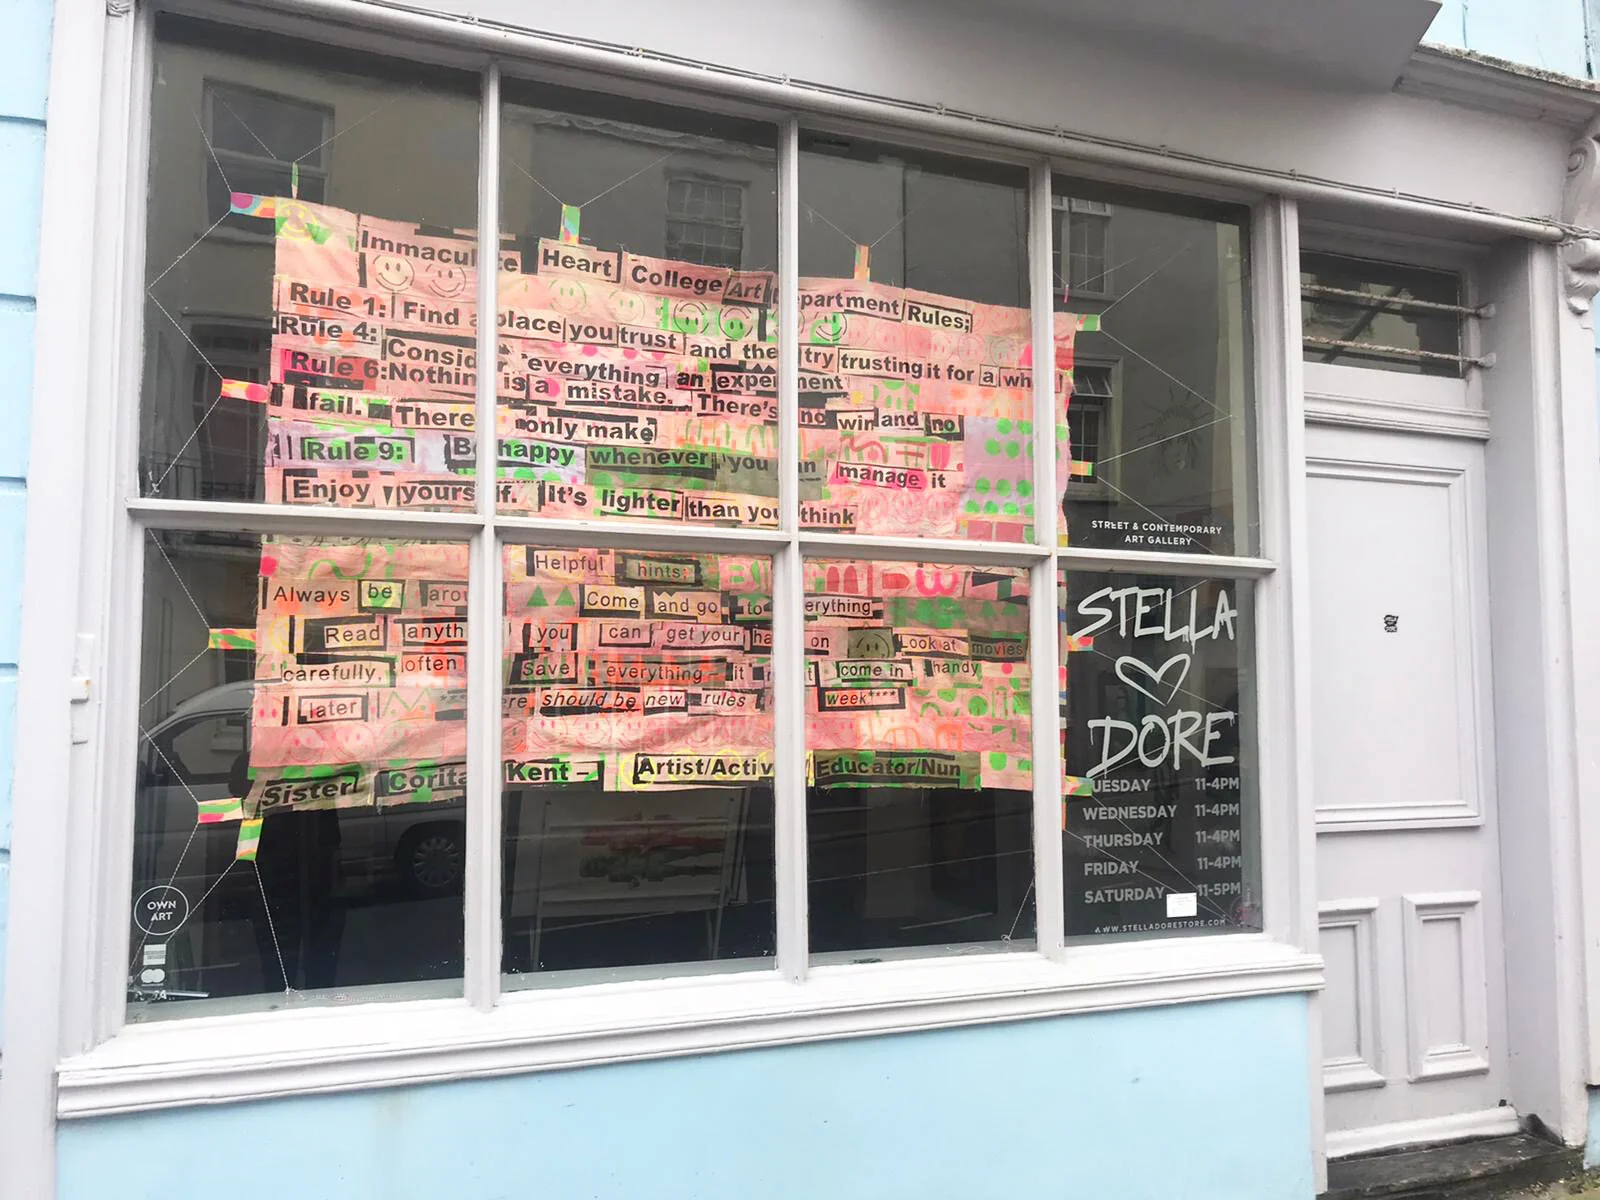 Immacul te Heart College Art epartment Rules;
Rule 1: Find a place you trust and the try trusting it for a wh
Rule 4: Consid r everything an expe ment
Rule 6: Nothin is a mistake. There's no win and no
fail. There only make
Rule 9: Be happy whenever you an manage it
Enjoy yours lf. It's lighter than you think
Helpful hints:
Always be arou Come and go to erything
Read anyth you can get your ha on Look at movies
carefully, often Save everything – it t come in handy
later re should be new rules week****
Sister Corita Kent – Artist/Activ Educator/Nun
STREET & CONTEMPORARY
ART GALLERY
STELLA
DORE
TUESDAY 11-4PM
WEDNESDAY 11-4PM
THURSDAY 11-4PM
FRIDAY 11-4PM
SATURDAY 11-5PM
WWW.STELLADORESTORE.COM
OWN
ART